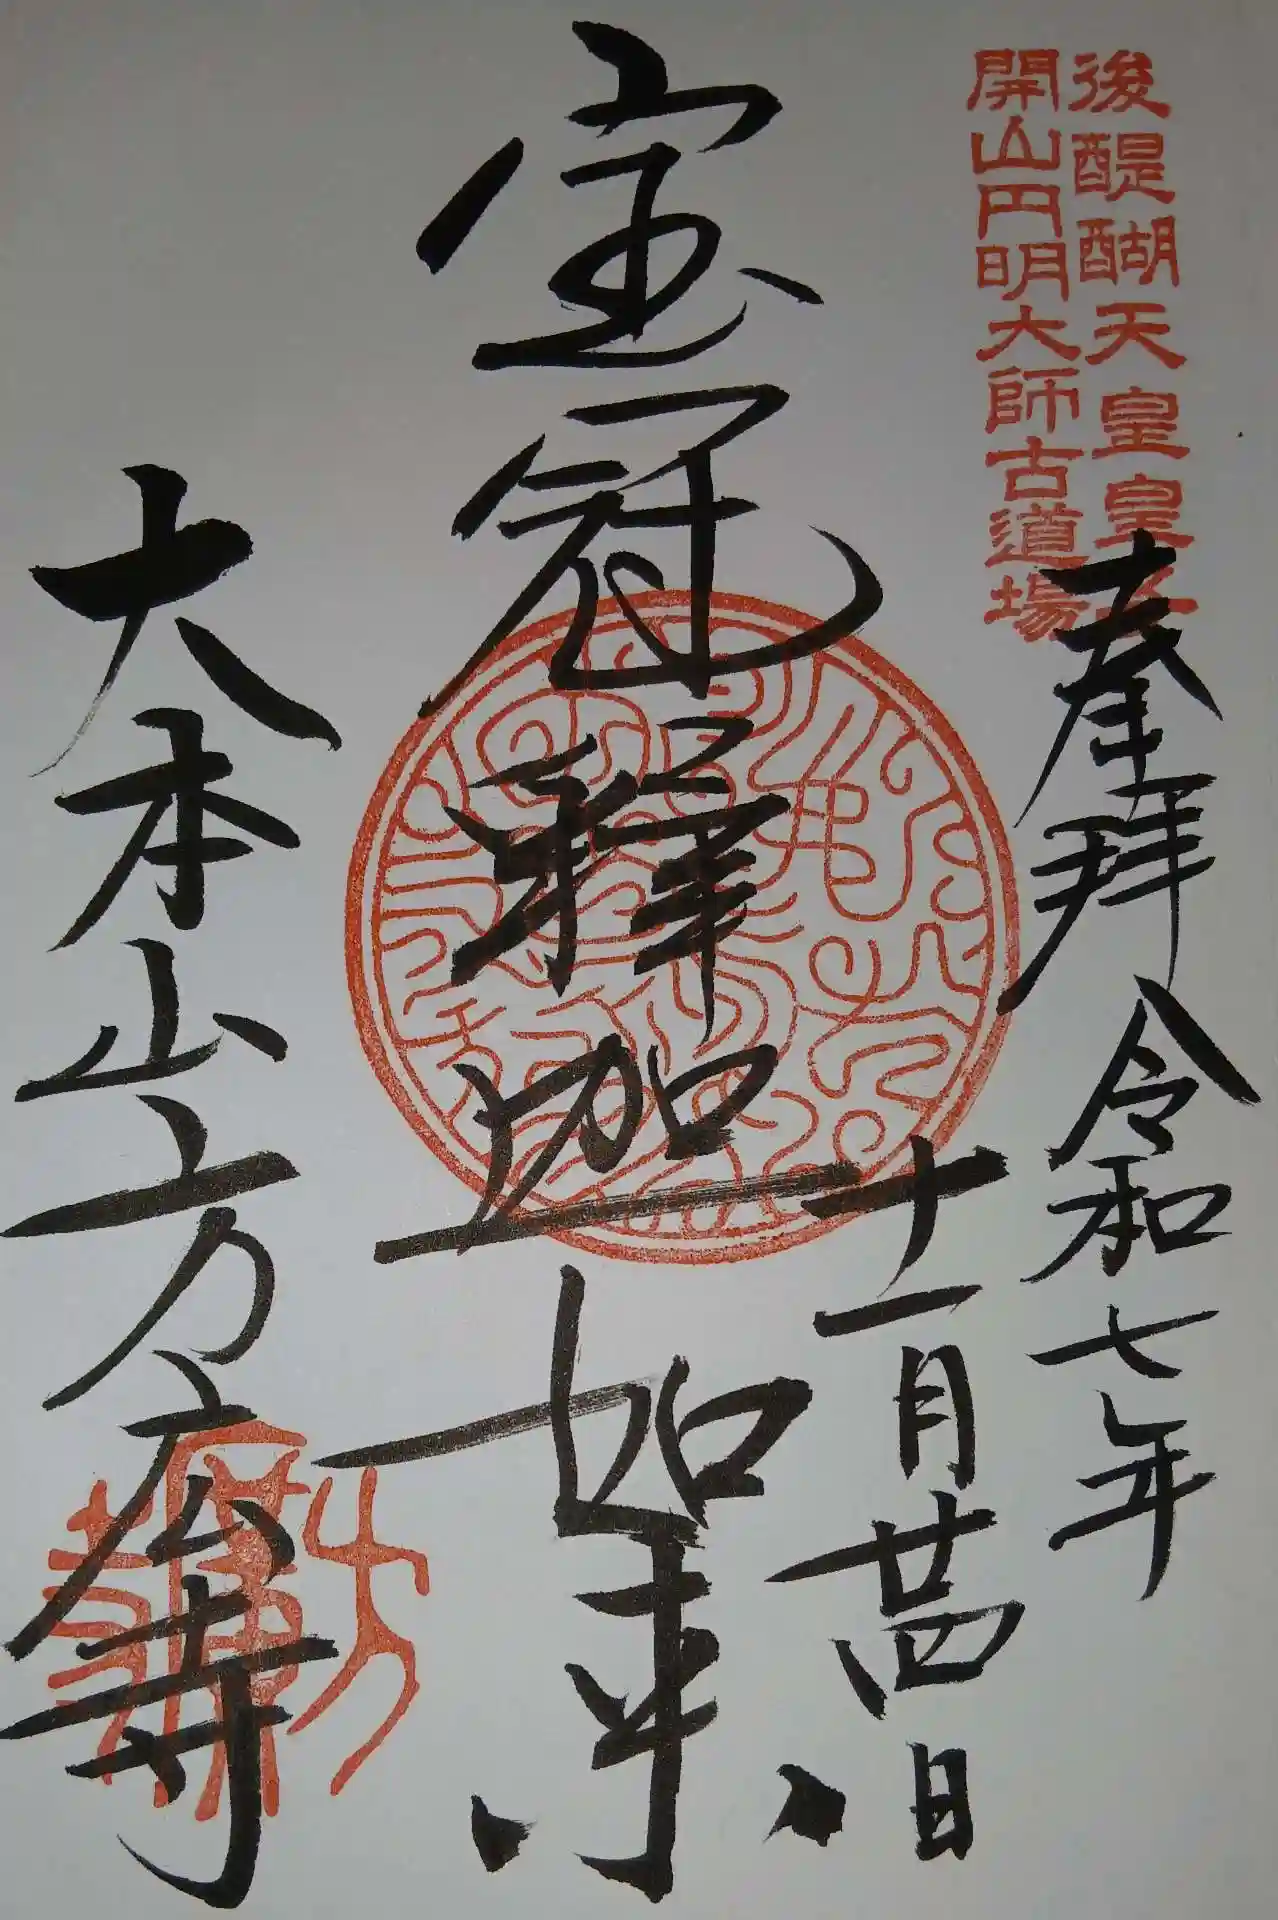 後醍醐天皇皇子
開山円明大師古道場
奉拝 令和七年
十一月廿四日
宝冠釋加如来
大本山方広寺